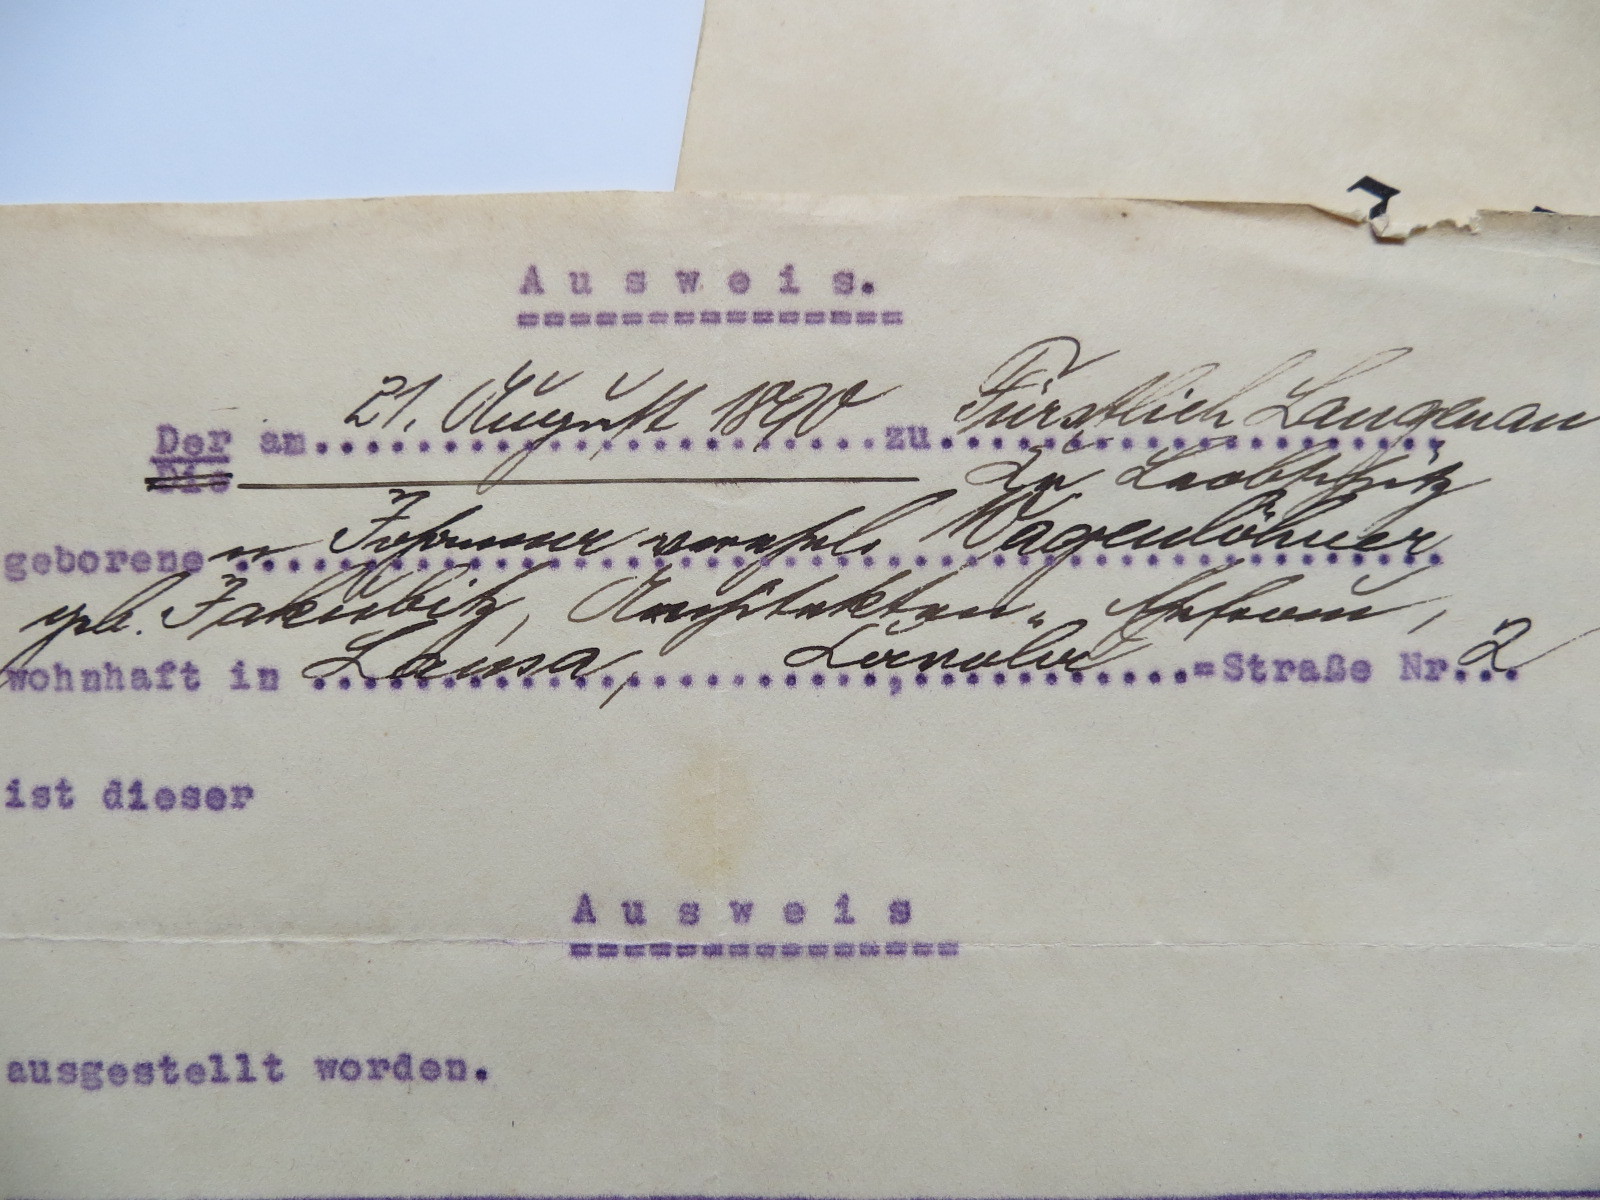 Ausweis.
Der am 21. August 1890 zu Fürstlich Langenau
Die
geborenen Johanna Wagenlöhner
geb. Jakubitz, Architekten-Ehefrau,
wohnhaft in Lausa, -Straße Nr. 2
ist dieser
Ausweis
ausgestellt worden.